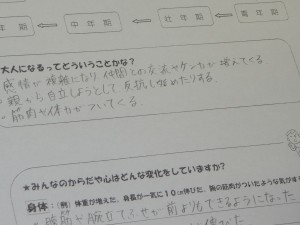 年期 ← 中年期 ← 壮年期 ← 青年期
大人になるってどういうことかな?
感情が複雑になり仲間との交流やケンカが増えてくる
・親から自立しようとして反抗し始めたりする。
・筋肉や体力がついてくる。
★みんなのからだや心はどんな変化をしていますか?
身体:(例)体重が増えた、身長が一気に10cm伸びた、胸の筋肉がついたような気がす
腕立てふせが前よりもできるようになった